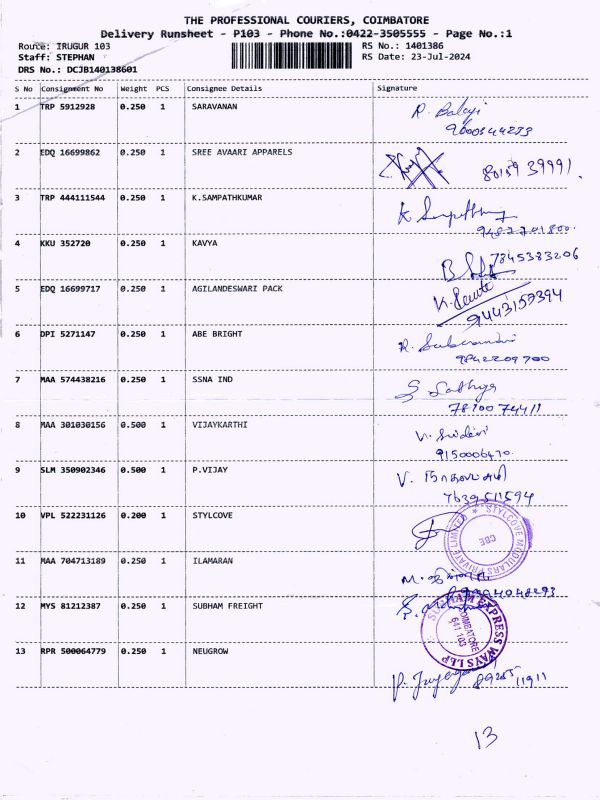 THE PROFESSIONAL COURIERS, COIMBATORE
Delivery Runsheet - P103 - Phone No.:0422-3505555 - Page No.:1
Route: IRUGUR 103 RS No.: 1401386
Staff: STEPHAN RS Date: 23-Jul-2024
DRS No.: DCJB140138601
S No Consignment No Weight PCS Consignee Details Signature
1 TRP 5912928 0.250 1 SARAVANAN R. Balaji
2 EDQ 16699862 0.250 1 SREE AVAARI APPARELS
3 TRP 444111544 0.250 1 K.SAMPATHKUMAR
4 KKU 352720 0.250 1 KAVYA 7845383206
5 EDQ 16699717 0.250 1 AGILANDESWARI PACK
9443157394
6 DPI 5271147 0.250 1 ABE BRIGHT
9842209700
7 MAA 574438216 0.250 1 SSNA IND S Sathya
8 MAA 301030156 0.500 1 VIJAYKARTHI
9150006470
9 SLM 350902346 0.500 1 P.VIJAY V.
7639511594
10 VPL 522231126 0.200 1 STYLCOVE
STYLCOVE MODULARS PRIVATE LIMITED
CBE
11 MAA 704713189 0.250 1 ILAMARAN
12 MYS 81212387 0.250 1 SUBHAM FREIGHT
SUBHAM EXPRESS WAYS LLP
COIMBATORE
641 103
13 RPR 500064779 0.250 1 NEUGROW
13